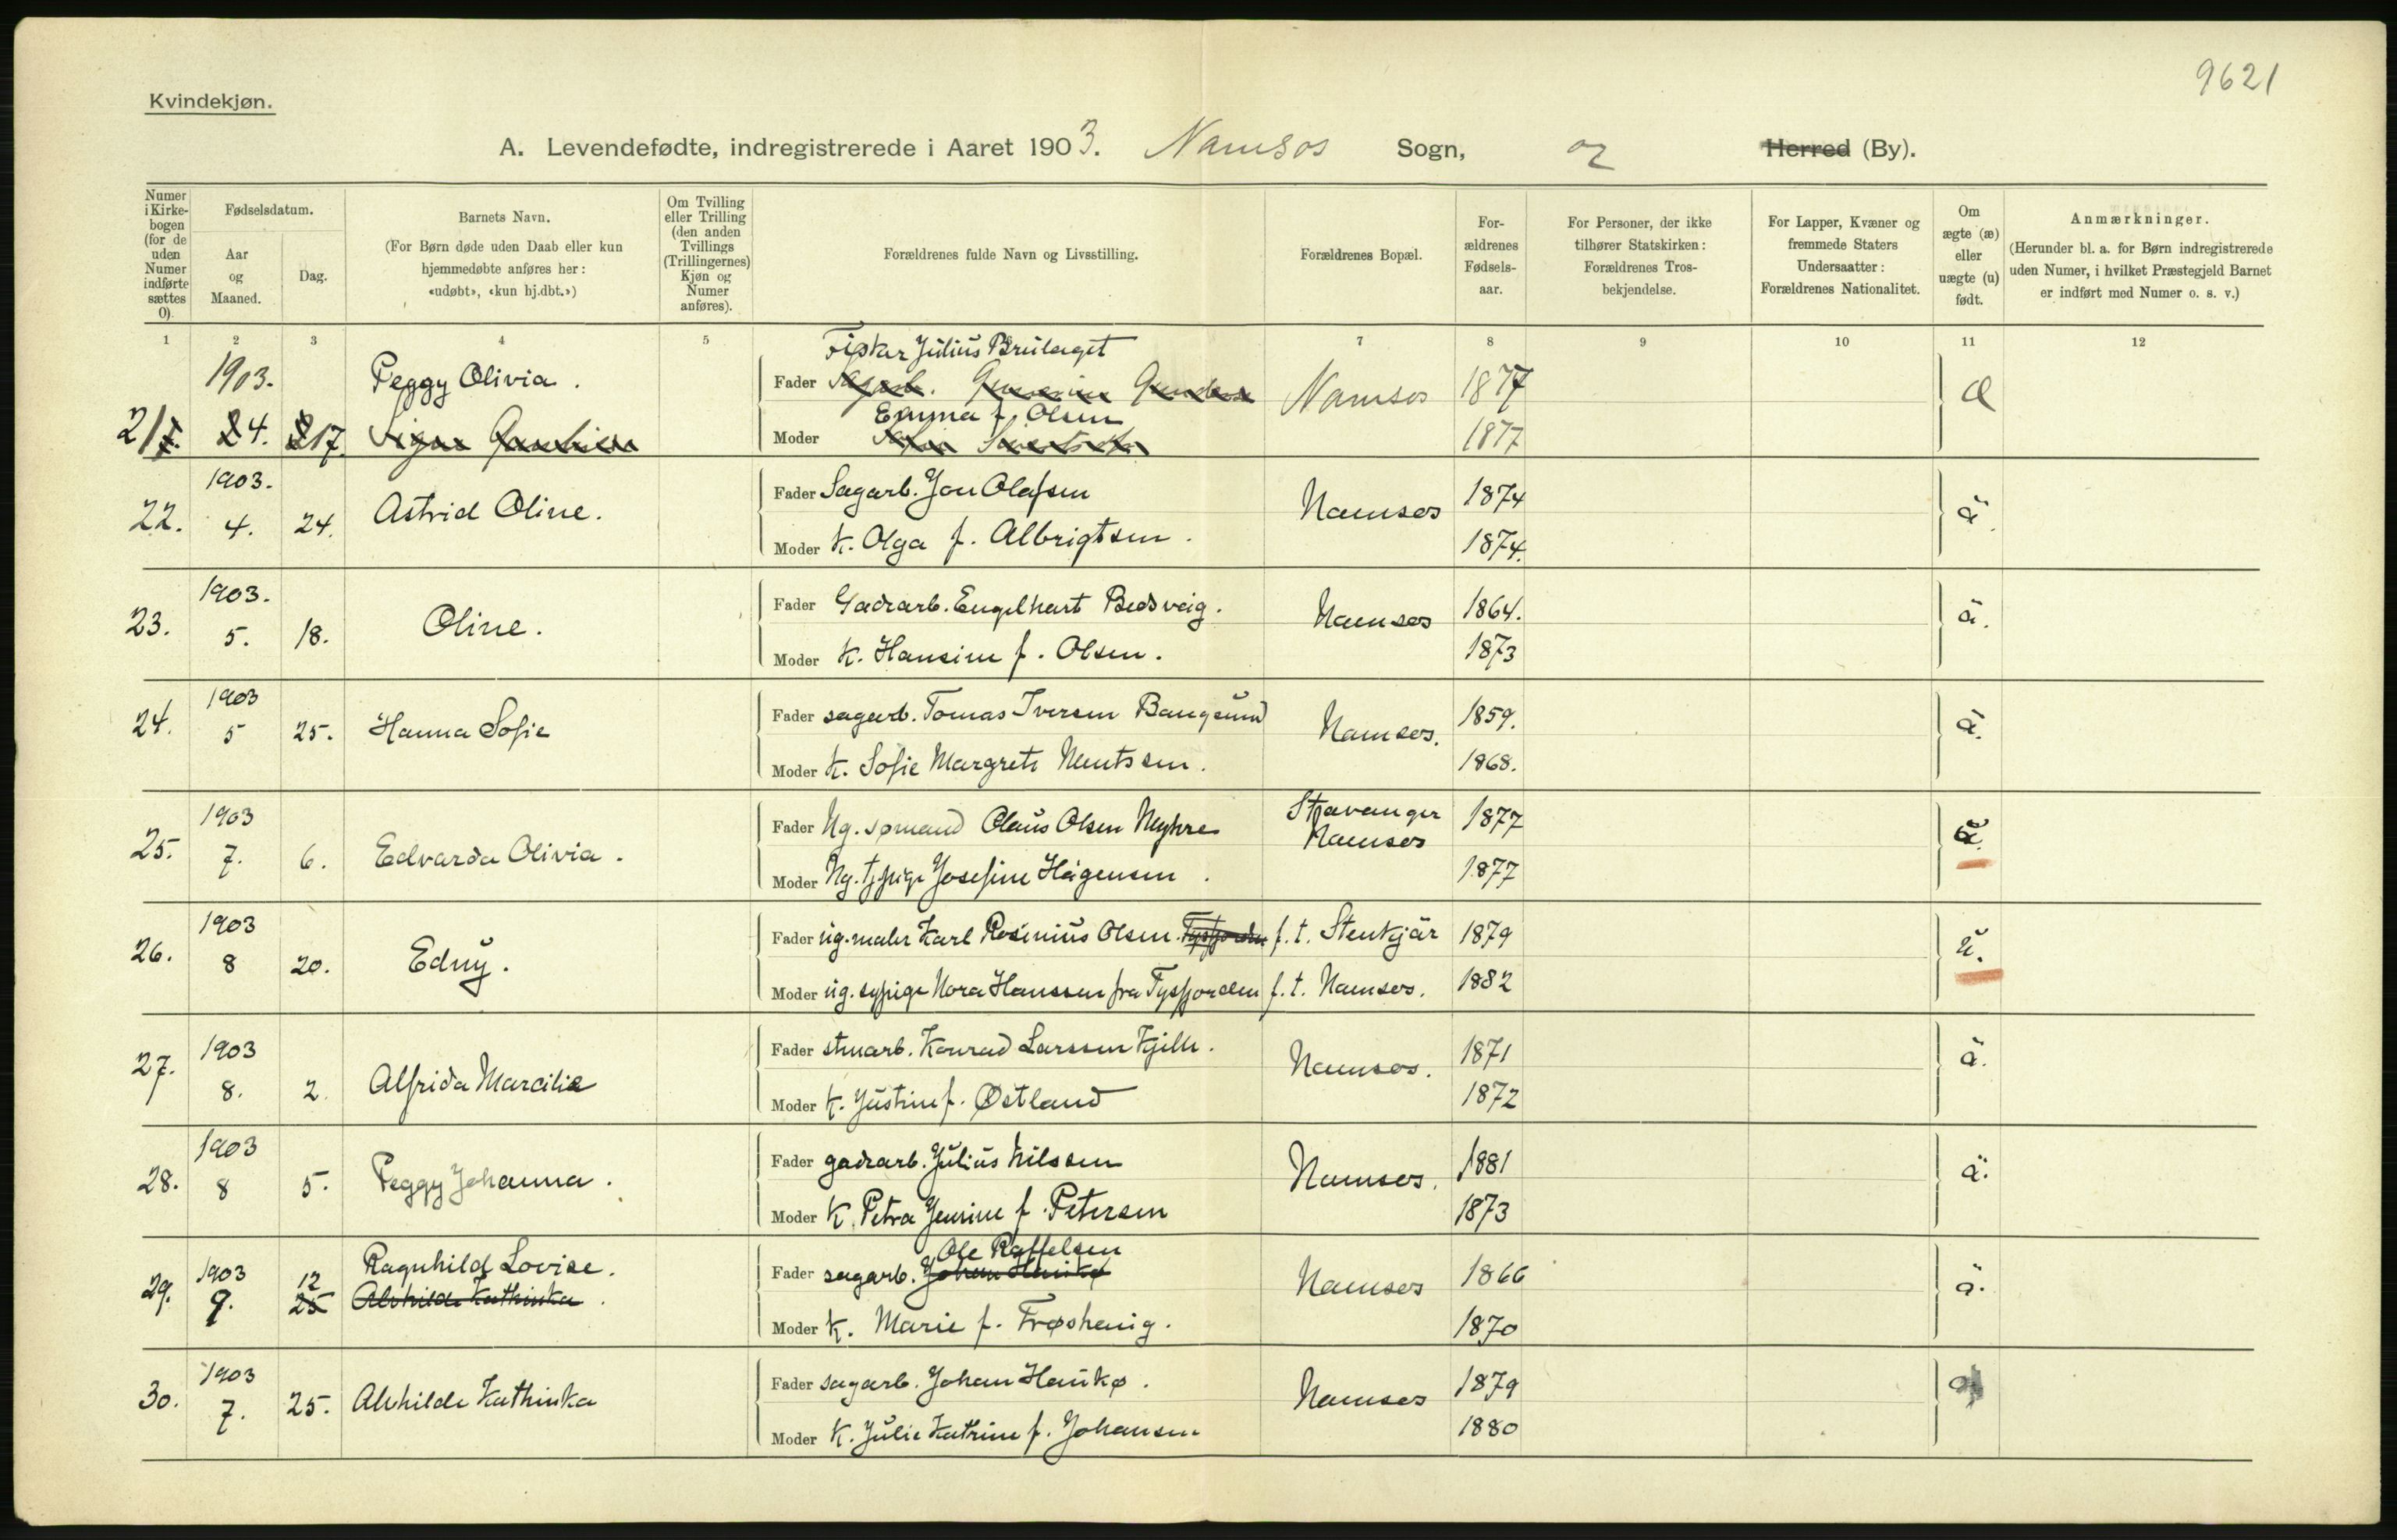 9621
Kvindekjøn.
A. Levendefødte, indregistrerede i Aaret 1903. Namsos Sogn, og Herred (By).
Numer i Kirkebogen (for de uden Numer indførte sættes 0).
Fødselsdatum.
Aar og Maaned.
Dag.
Barnets Navn.
(For Børn døde uden Daab eller kun hjemmedøbte anføres her: «udøbt», «kun hj.dbt.»)
Om Tvilling eller Trilling (den anden Tvillings (Trillingernes) Kjøn og Numer anføres).
Forældrenes fulde Navn og Livsstilling.
Forældrenes Bopæl.
For-ældrenes Fødsels-aar.
For Personer, der ikke tilhører Statskirken: Forældrenes Tros-bekjendelse.
For Lapper, Kvæner og fremmede Staters Undersaatter: Forældrenes Nationalitet.
Om ægte (æ) eller uægte (u) født.
Anmærkninger.
(Herunder bl. a. for Børn indregistrerede uden Numer, i hvilket Præstegjeld Barnet er indført med Numer o. s. v.)
1 2 3 4 5 7 8 9 10 11 12
21. 1903. 4. 17. Peggy Olivia.
Fisker Julius Breilaget
Fader Namsos 1877 æ
Emma f. Olsen
Moder 1877
22. 1903. 4. 24. Astrid Oline.
Fader Sagarb. Jon Olafsen Namsos 1874 ä.
Moder K. Olga f. Albrigtsen. 1874.
23. 1903. 5. 18. Oline.
Fader Gadearb. Engelhart Bedsveig. Namsos 1864. ä.
Moder K. Hansine f. Olsen. 1873
24. 1903 5 25. Hanna Sofie
Fader sagarb. Tomas Iversen Bangsund Namsos. 1859. ä.
Moder K. Sofie Margrete 1868.
25. 1903 7. 6. Edvarda Olivia.
Fader Ug. sømand Olaus Olsen Myhre Stavanger 1877
Namsos
Moder Ug. tjpige Josefine Hågensen. 1877
26. 1903 8 20. Edny.
Fader ug. maler Karl Rosinius Olsen. Tysfjorden f. t. Stenkjär 1879 u.
Moder ug. sypige Nora Hanssen fra Tysfjorden f. t. Namsos. 1882
27. 1903 8. 2. Alfrida Marcilie
Fader stuarb. Konrad Larssen Kjelle. Namsos. 1871 ä.
Moder K. Justine f. Østland 1872
28. 1903 8 5. Peggy Johanna.
Fader gadearb. Julius Nilssen Namsos. 1881 ä.
Moder K. Petra Jensine f. Petersen 1873
29. 1903 9. 12 25 Ragnhild Lovise.
Alvhilde Kathinka.
Ole Raffelsen
Fader sagarb. Johan Haukø Namsos 1866 ä.
Moder K. Marie f. Frøshaug. 1870
30. 1903 7. 25. Alvhilde Kathinka
Fader sagarb. Johan Haukø. Namsos 1879
Moder K. Julie Katrine f. Johansen 1880